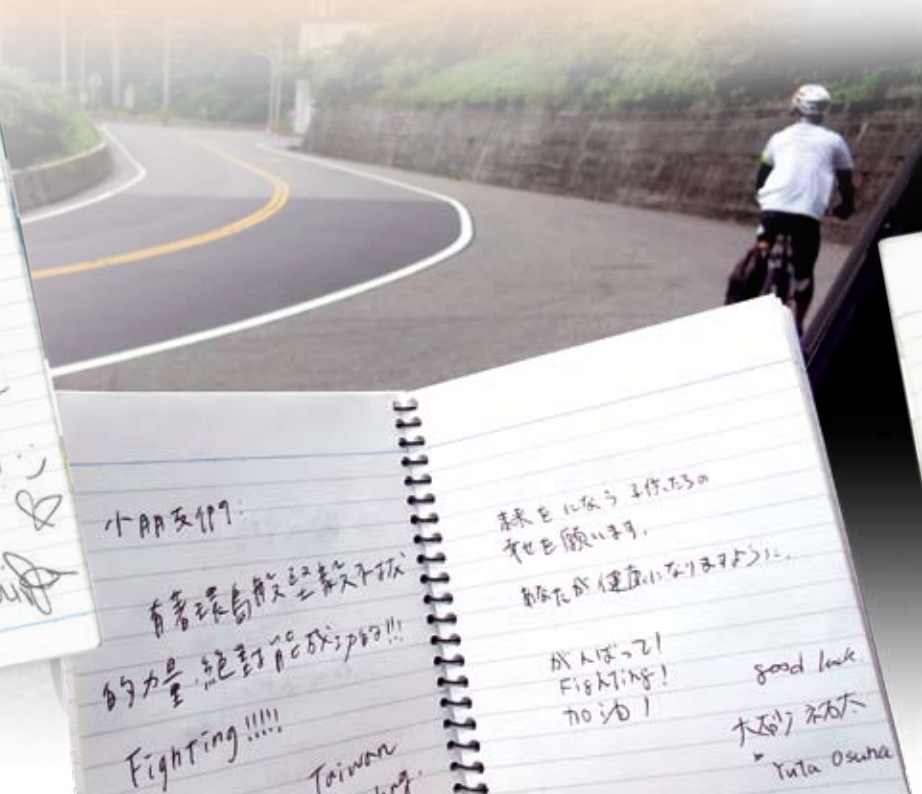 小朋友們:
有著環島般堅毅不拔
的力量,絕對能成功的!!!
Fighting!!!!!
Taiwan
未来をになう 子供たちの
幸せを願います。
あなたが健康になりますように。
がんばって!
Fighting!
加油!
good luck.
大砂 祐太
Yuta Osuna